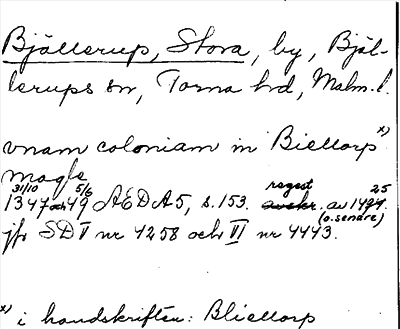 Bjällerup, Stora, by, Bjäl-
lerups sn, Torna hd, Malm. l.
vnam coloniam in Biellorp x)
magle
31/10 5/6 regest 25
1347 och 49 ÆDA 5, s. 153. avskr. av 1494.
(o. senare)
jfr SD V nr 4258 och VI nr 4443.
x) i handskriften: Bliellorp